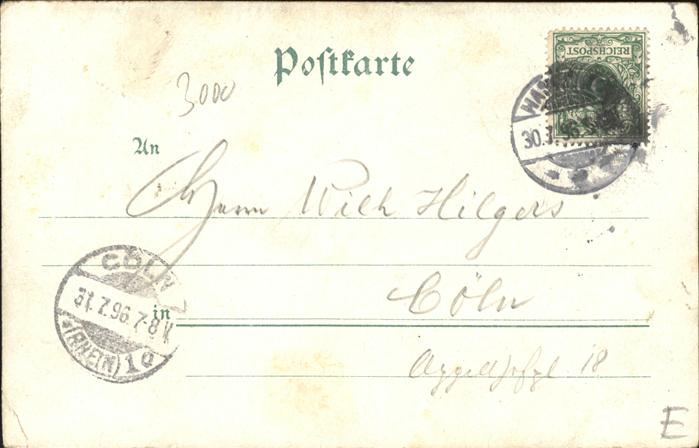 Postkarte
REICHSPOST
3000
30.7.96
An
Herrn Wilh Hilgers
CÖLN
31.7.96.7-8V.
*(RHEIN)1q
in
Cöln
18
E